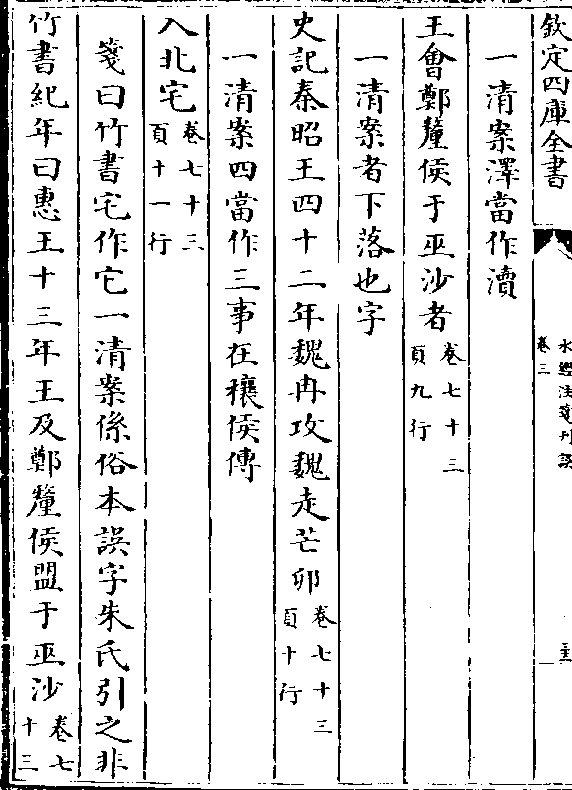 欽定四庫全書
水經注箋刊誤
卷三
一清案澤當作瀆
王會鄭釐侯于巫沙者卷七十三頁九行
一清案者下落也字
史記秦昭王四十二年魏冉攻魏走芒卯卷七十三頁十行
一清案四當作三事在穰侯傳
入北宅卷七十三頁十一行
箋曰竹書宅作它一清案係俗本誤字朱氏引之非
竹書紀年曰惠王十三年王及鄭釐侯盟于巫沙卷七十三